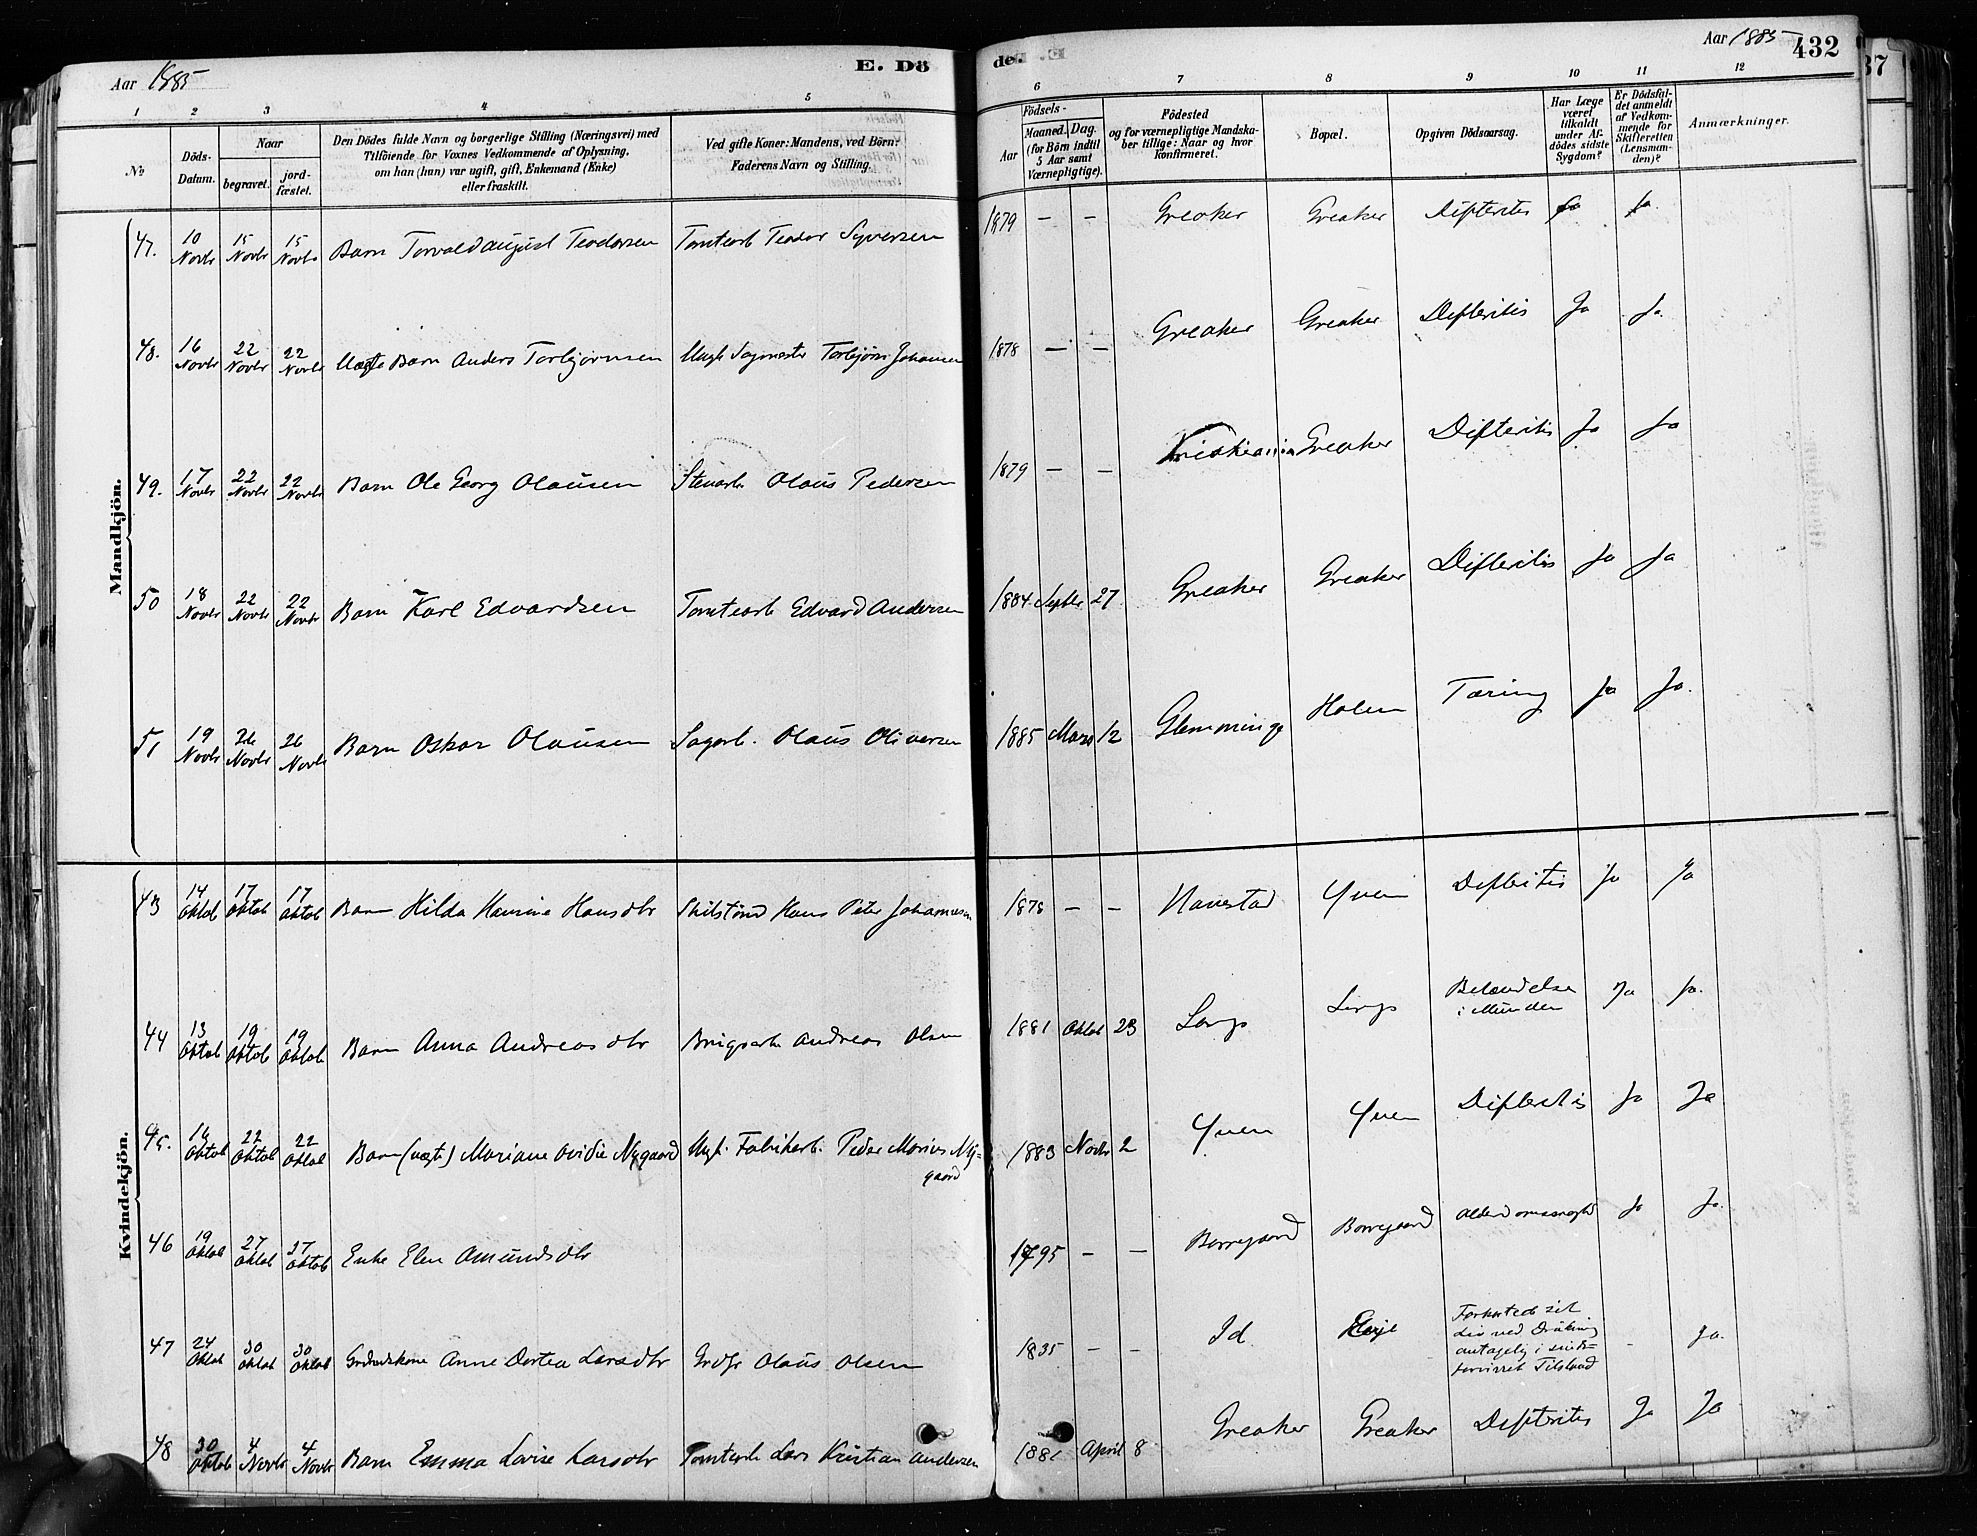 Aar 1885
E. Dö
de.
Aar 1885
432
37
1 2 3 4 5 6 7 8 9 10 11 12
No
Döds-
Datum.
Naar
begravet.
jord-
fæstet.
Den Dödes fulde Navn og borgerlige Stilling (Næringsvei) med
Tilföiende for Voxnes Vedkommende af Oplysning,
om han (hun) var ugift, gift, Enkemand (Enke)
eller fraskilt.
Ved gifte Koner: Mandens, ved Börn:
Faderens Navn og Stilling.
Födsels-
Aar
Maaned. Dag.
(for Börn indtil
5 Aar samt
Værnepligtige).
Födested
og for værnepligtige Mandska-
ber tillige: Naar og hvor
konfirmeret.
Bopæl.
Opgiven Dödsaarsag.
Har Læge
været
tilkaldt
under Af-
dödes sidste
Sygdom?
Er Dödsfal-
det anmeldt
af Vedkom-
mende for
Skifteretten
(Lensman-
den)?
Anmærkninger.
Mandkjön.
47. 10 Novbr 15 Novbr 15 Novbr Barn Torvald August Teodorsen Tomtearb Teodor Syversen 1879 — — Greaker Greaker Difteritis Ja Ja.
48. 16 Novbr 22 Novbr 22 Novbr Uægte Barn Anders Torbjørnsen Ungk Sagmester Torbjørn Johansen 1878 — — Greaker Greaker Difteritis Ja Ja.
49. 17 Novbr 22 Novbr 22 Novbr Barn Ole Georg Olausen Stenarb. Olaus Pedersen 1879 — — Kristiania Greaker Difteritis Ja Ja
50 18 Novbr 22 Novbr 22 Novbr Barn Karl Edvardsen Tomtearb Edvard Andersen 1884 Septbr 27 Greaker Greaker Difteritis Ja Ja
51 19 Novbr 26 Novbr 26 Novbr Barn Oskar Olausen Sagarb. Olaus Oliversen 1885 Mars 12 Glemminge Holen Tæring Ja Ja.
Kvindekjön.
43 14 Oktob 17 Oktob 17 Oktob Barn Hilda Hansine Hansdtr Hans Peter Johannesen 1878 — — Navestad Yven Difteritis Ja Ja
44 13 Oktob 19 Oktob 19 Oktob Barn Anna Andreasdtr Brugsarb Andreas Olsen 1881 Oktob 23 Betændelse
i Munden Ja Ja.
45. 16 Oktob 22 Oktob 22 Oktob Barn (uægte) Mariane Ovidie Nygaard Ungk. Fabrikarb. Peder Marius Ny-
gaard 1883 Novbr 2 Yven Yven Difteritis Ja Ja
46 19 Oktob 27 Oktob 27 Oktob Enke Elen Amundsdtr 1795 — — Borregaard Borregaard Alderdomssvaghed Ja Ja.
47 24 Oktob 30 Oktob 30 Oktob Gaardmandskone Anne Dortea Larsdtr Grdbr Olaus Olsen 1835 — — Id Forkortede sit
Liv ved Drukning
antagelig i sinds-
forvirret Tilstand - Ja.
48 30 Oktob 4 Novbr 4 Novbr Barn Emma Lovise Larsdtr Tomtearb Lars Kristian Andersen 1881 April 8 Greaker Greaker Difteritis Ja Ja